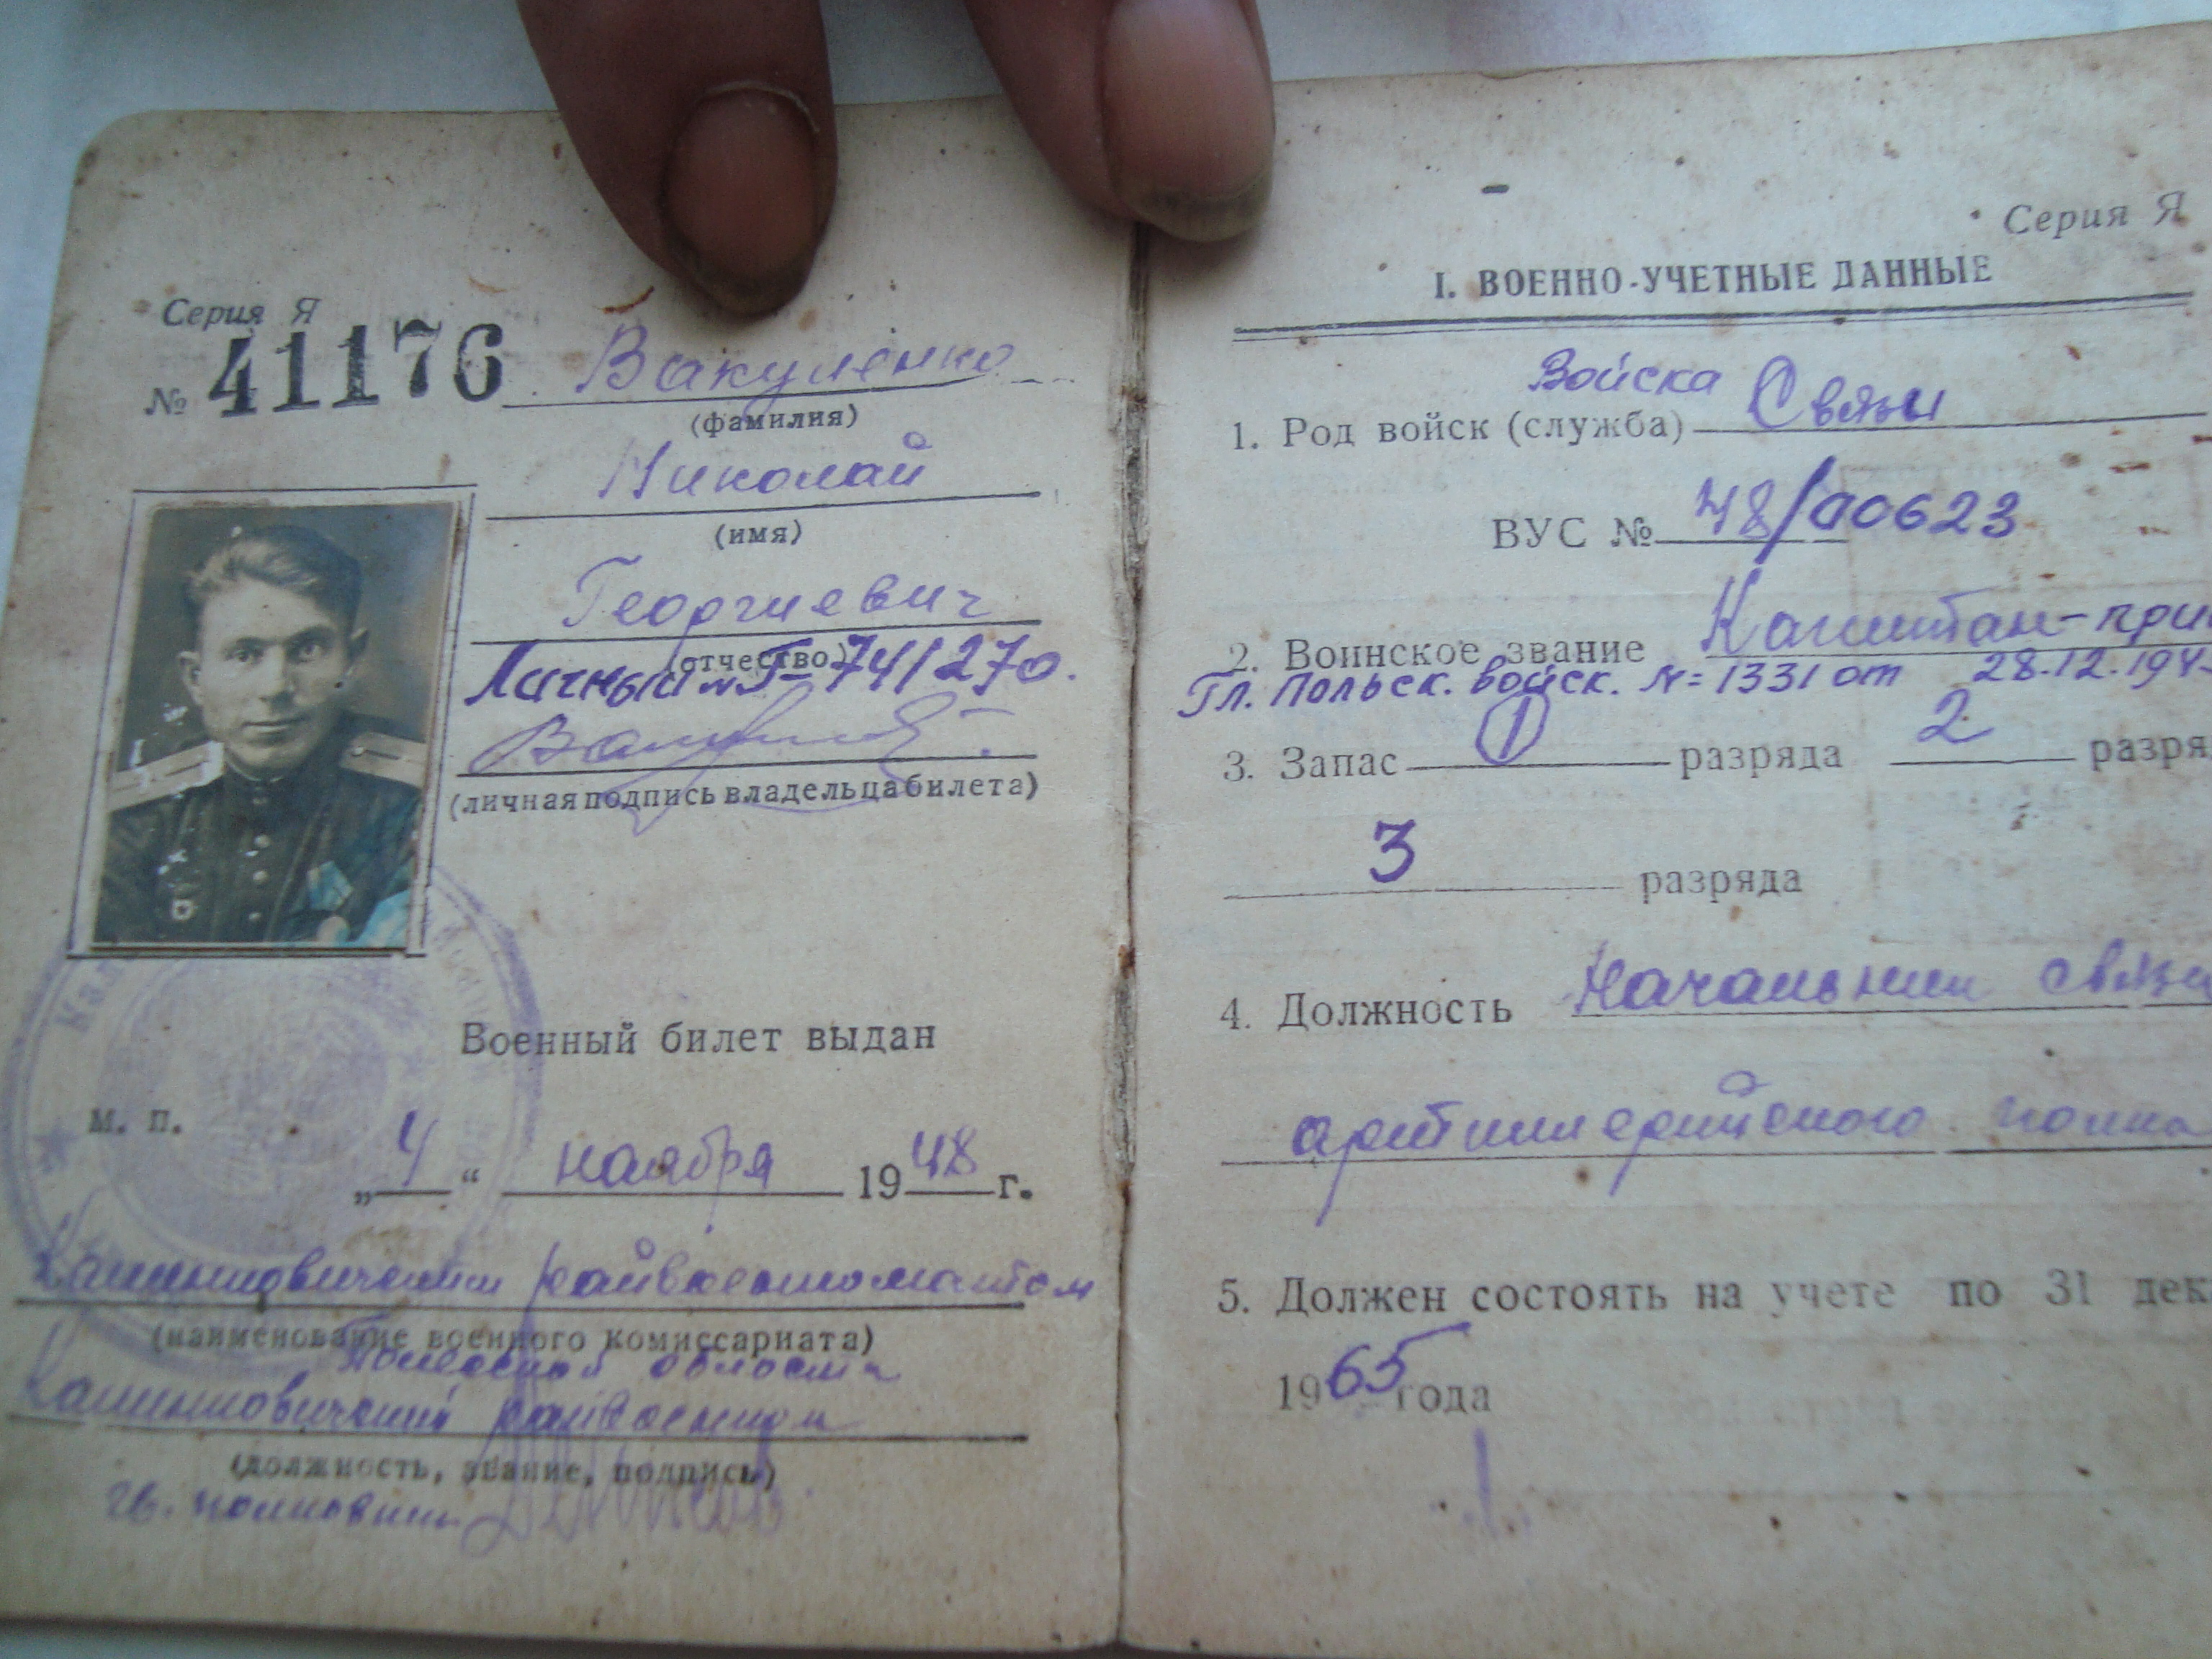 Серия Я
№ 41176 Вакуленко
(фамилия)
Николай
(имя)
Георгиевич
(отчество)
Личный № Г-741270.
(личная подпись владельца билета)
Военный билет выдан
М. П.
„4“ ноября 1948 г.
Калинковичским райвоенкоматом
(наименование военного комиссариата)
Полесской области
Калинковичский райвоенком
(должность, звание, подпись)
гв. полковник
Серия Я
I. ВОЕННО-УЧЕТНЫЕ ДАННЫЕ
Войска
1. Род войск (служба) Связи
ВУС № 48/00623
2. Воинское звание Капитан-при
Гл. Польск. войск. №=1331 от 28.12.194
3. Запас 1 разряда 2 разря
3 разряда
4. Должность Начальник связи
артиллерийского полка
5. Должен состоять на учете по 31 дек
1965 года